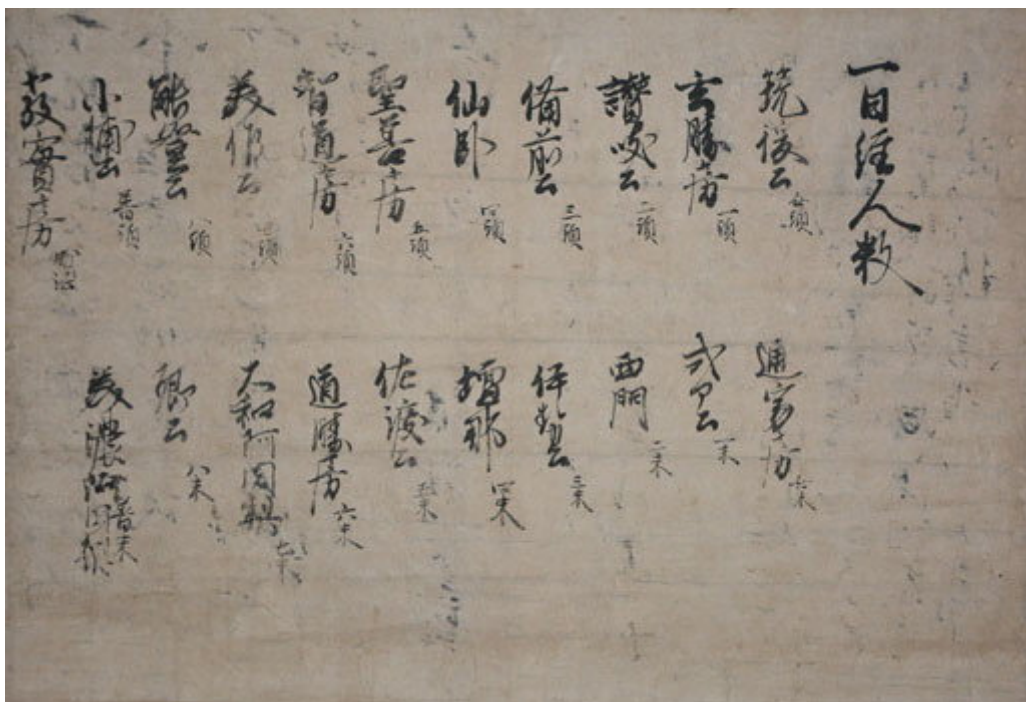 一日経人数
筑後公
玄勝房 一頭
讃岐公 二頭
備前公 三頭
仙卧 四頭
聖善房 五頭
智道房 六頭
美作公 七頭
能登公 八頭
小輔公 普頭
教実房
通実房
式部公 一末
西門 二末
伊勢公 三末
壇那 四末
佐渡公 五末
道勝房 六末
大和阿闍梨 七末
卿公 八末
美濃阿闍梨 普末